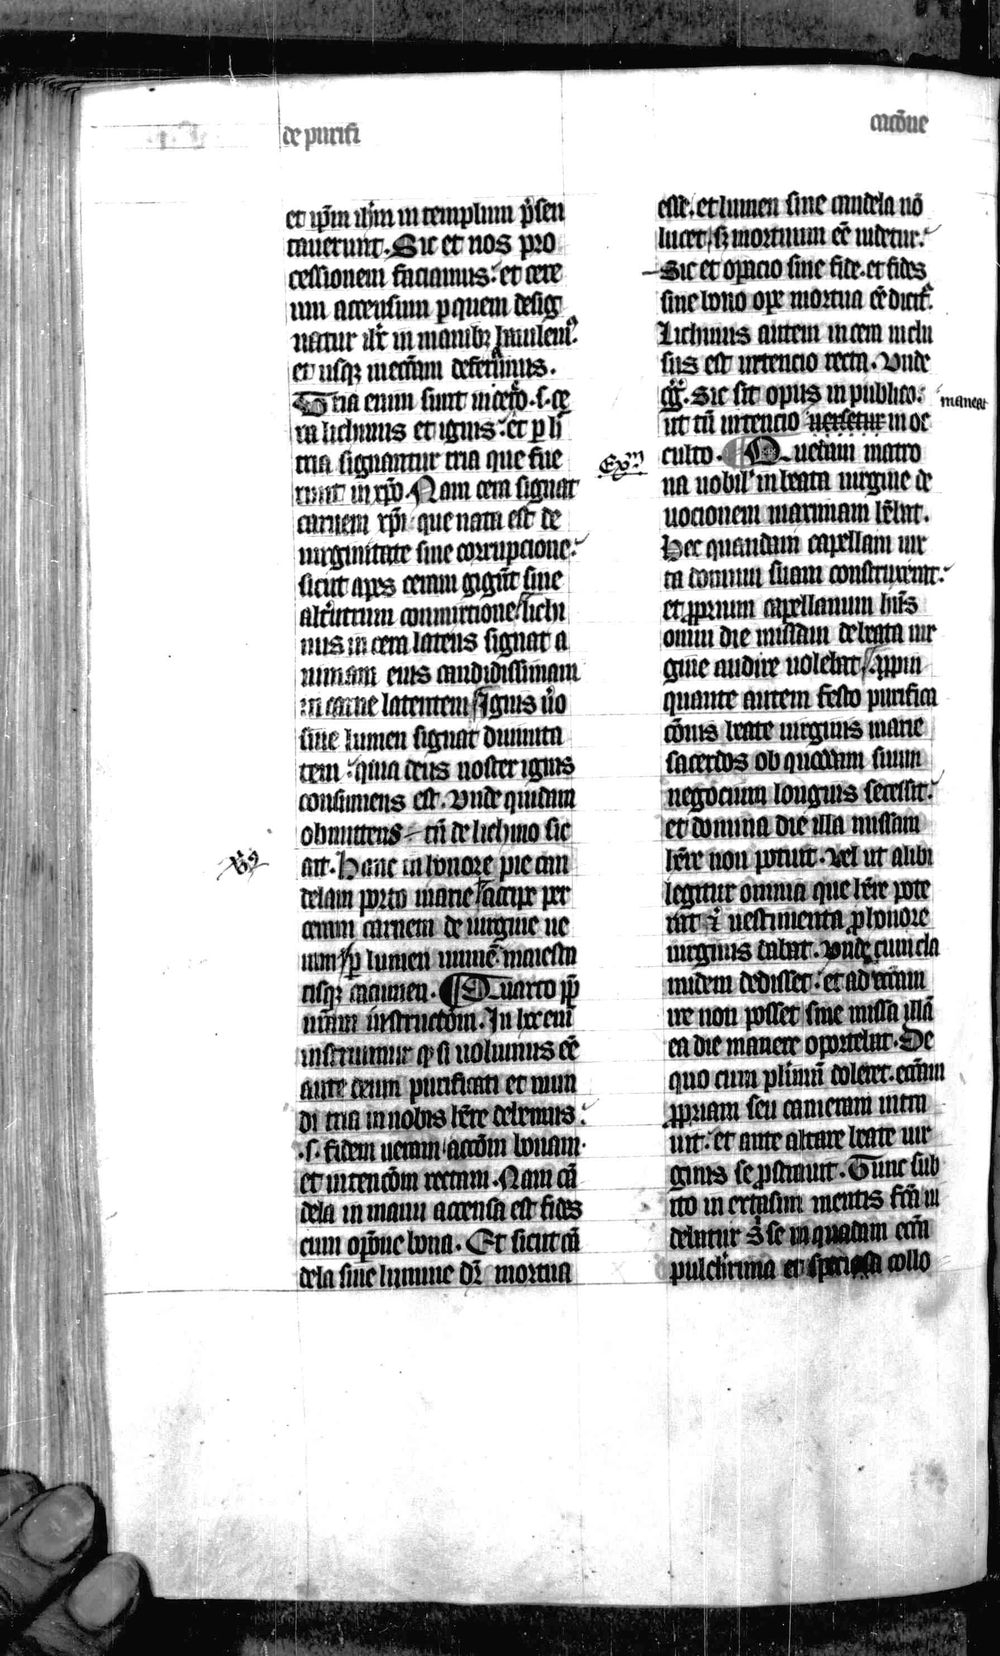 de purifi
cacōne
et ip̄m ih̄m in templum p̄sen
tauerunt. Sic et nos pro
cessionem faciamus: et cere
um accensum p quem desig
natur ih̄c in manibꝫ
et usqꝫ in ecc̄am deferimus.
Tria enim sunt in cereo .s. ce
ra lichinus et ignis: et p h̄
tria signantur tria que fue
runt in xp̄o. Nam cera signat
carnem xp̄i que nata est de
uirginitate sine corrupcione:
sicut apes ceram gignūt sine
alt̄utrum commixtione lichi
nus in cera latens signat a
nimam eius candidissimam
in carne latentem Ignis u̾o
siue lumen signat diuinita
tem: quia deus noster ignis
consumens est. Vnde quidam
tn̄ de lichino sic
ait. Hanc in honore pie can
delam porto marie accipe per
ceram carnem de uirgine ue
ram p lumen numē maiesta
tisqꝫ cacumen. Quarto ppͥ
nr̄am instructōm. In hoc enī
instruimur qͥ si uolumus eē
ante deum purificati et mun
di tria in nobis hr̄e debemus:
.s. fidem ueram accōm bonam.
et intencōm rectam. Nam cā
dela in manu accensa est fides
cum op̄one bona. Et sicut cā
dela sine lumine dr̄ mortua
esse. et lumen sine candela nō
lucet sꝫ mortuum eē uidetur:
Sic et op̄acio sine fide. et fides
sine bono ope mortua eē dicit̾.
Lichinus autem in cera inclu
sus est intencio recta. Vnde
gg̾. Sic sit opus in publico:
maneat
ut tn̄ intencio uersetur in oc
culto. Quedam matro
Exm̄
na nobil̾ in beata uirgine de
uocionem maximam hēbat.
Hec quandam capellam iux
ta domum suam construxerat:
et pprium capellanum hn̄s
omni die missam de beata uir
gine audire uolebat. ppin
quante autem festo purifica
cōnis beate uirginis marie
sacerdos ob quoddam suum
negocium longius secessit:
et domina die illa missam
hr̄e non potuit. Vel ut alibi
legitur omnia que hr̄e pote
rat et uestimenta p honore
uirginis dabat. Vnde cum cla
midem dedisset: et ad ecc̄am
ire non posset sine missa illā
ea die manere oportebat. De
quo cum pl̾imū doleret. ecc̄am
ppriam seu cameram intra
uit: et ante altare beate uir
ginis se pstrauit. Tunc sub
ito in extasim mentis fc̄a ui
debatur s̾ se in quadam ecc̄a
pulch̾rima et speciosa collo